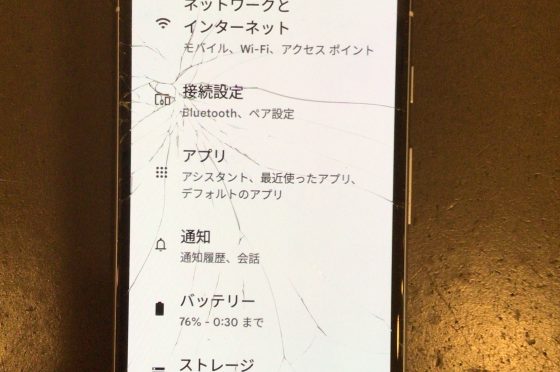 ネットワークと
インターネット
モバイル、Wi-Fi、アクセス ポイント
接続設定
Bluetooth、ペア設定
アプリ
アシスタント、最近使ったアプリ、
デフォルトのアプリ
通知
通知履歴、会話
バッテリー
76% - 0:30 まで
ストレージ